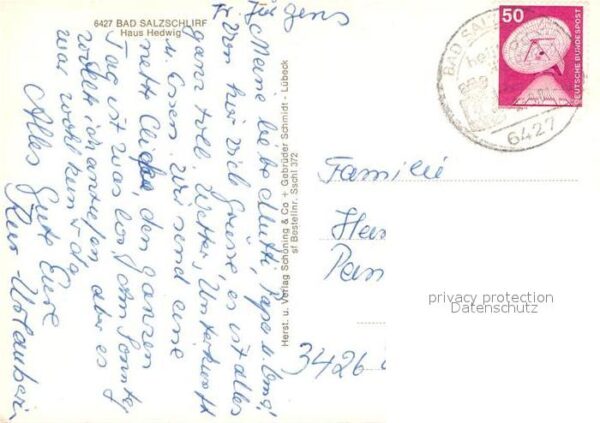 6427 BAD SALZSCHLIRF
Haus Hedwig
Meine liebe Mutti, Papa u. Oma!
Von hier viele Grüsse, es ist alles
ganz toll, Wetter, Unterkunft
u. Essen. Wir sind eine
nette Clique, den ganzen
Tag ist was los. Am Sonntag
wollte ich anrufen, aber es
war wohl keiner da.
Alles Gute Eure
Kur-Urlauberin
Herst. u. Verlag Schöning & Co + Gebrüder Schmidt · Lübeck
sf Bestellnr. Sschl 372
BAD SALZ
heil
6427
50
DEUTSCHE BUNDESPOST
Familie
Han
Pan
3426
privacy protection
Datenschutz